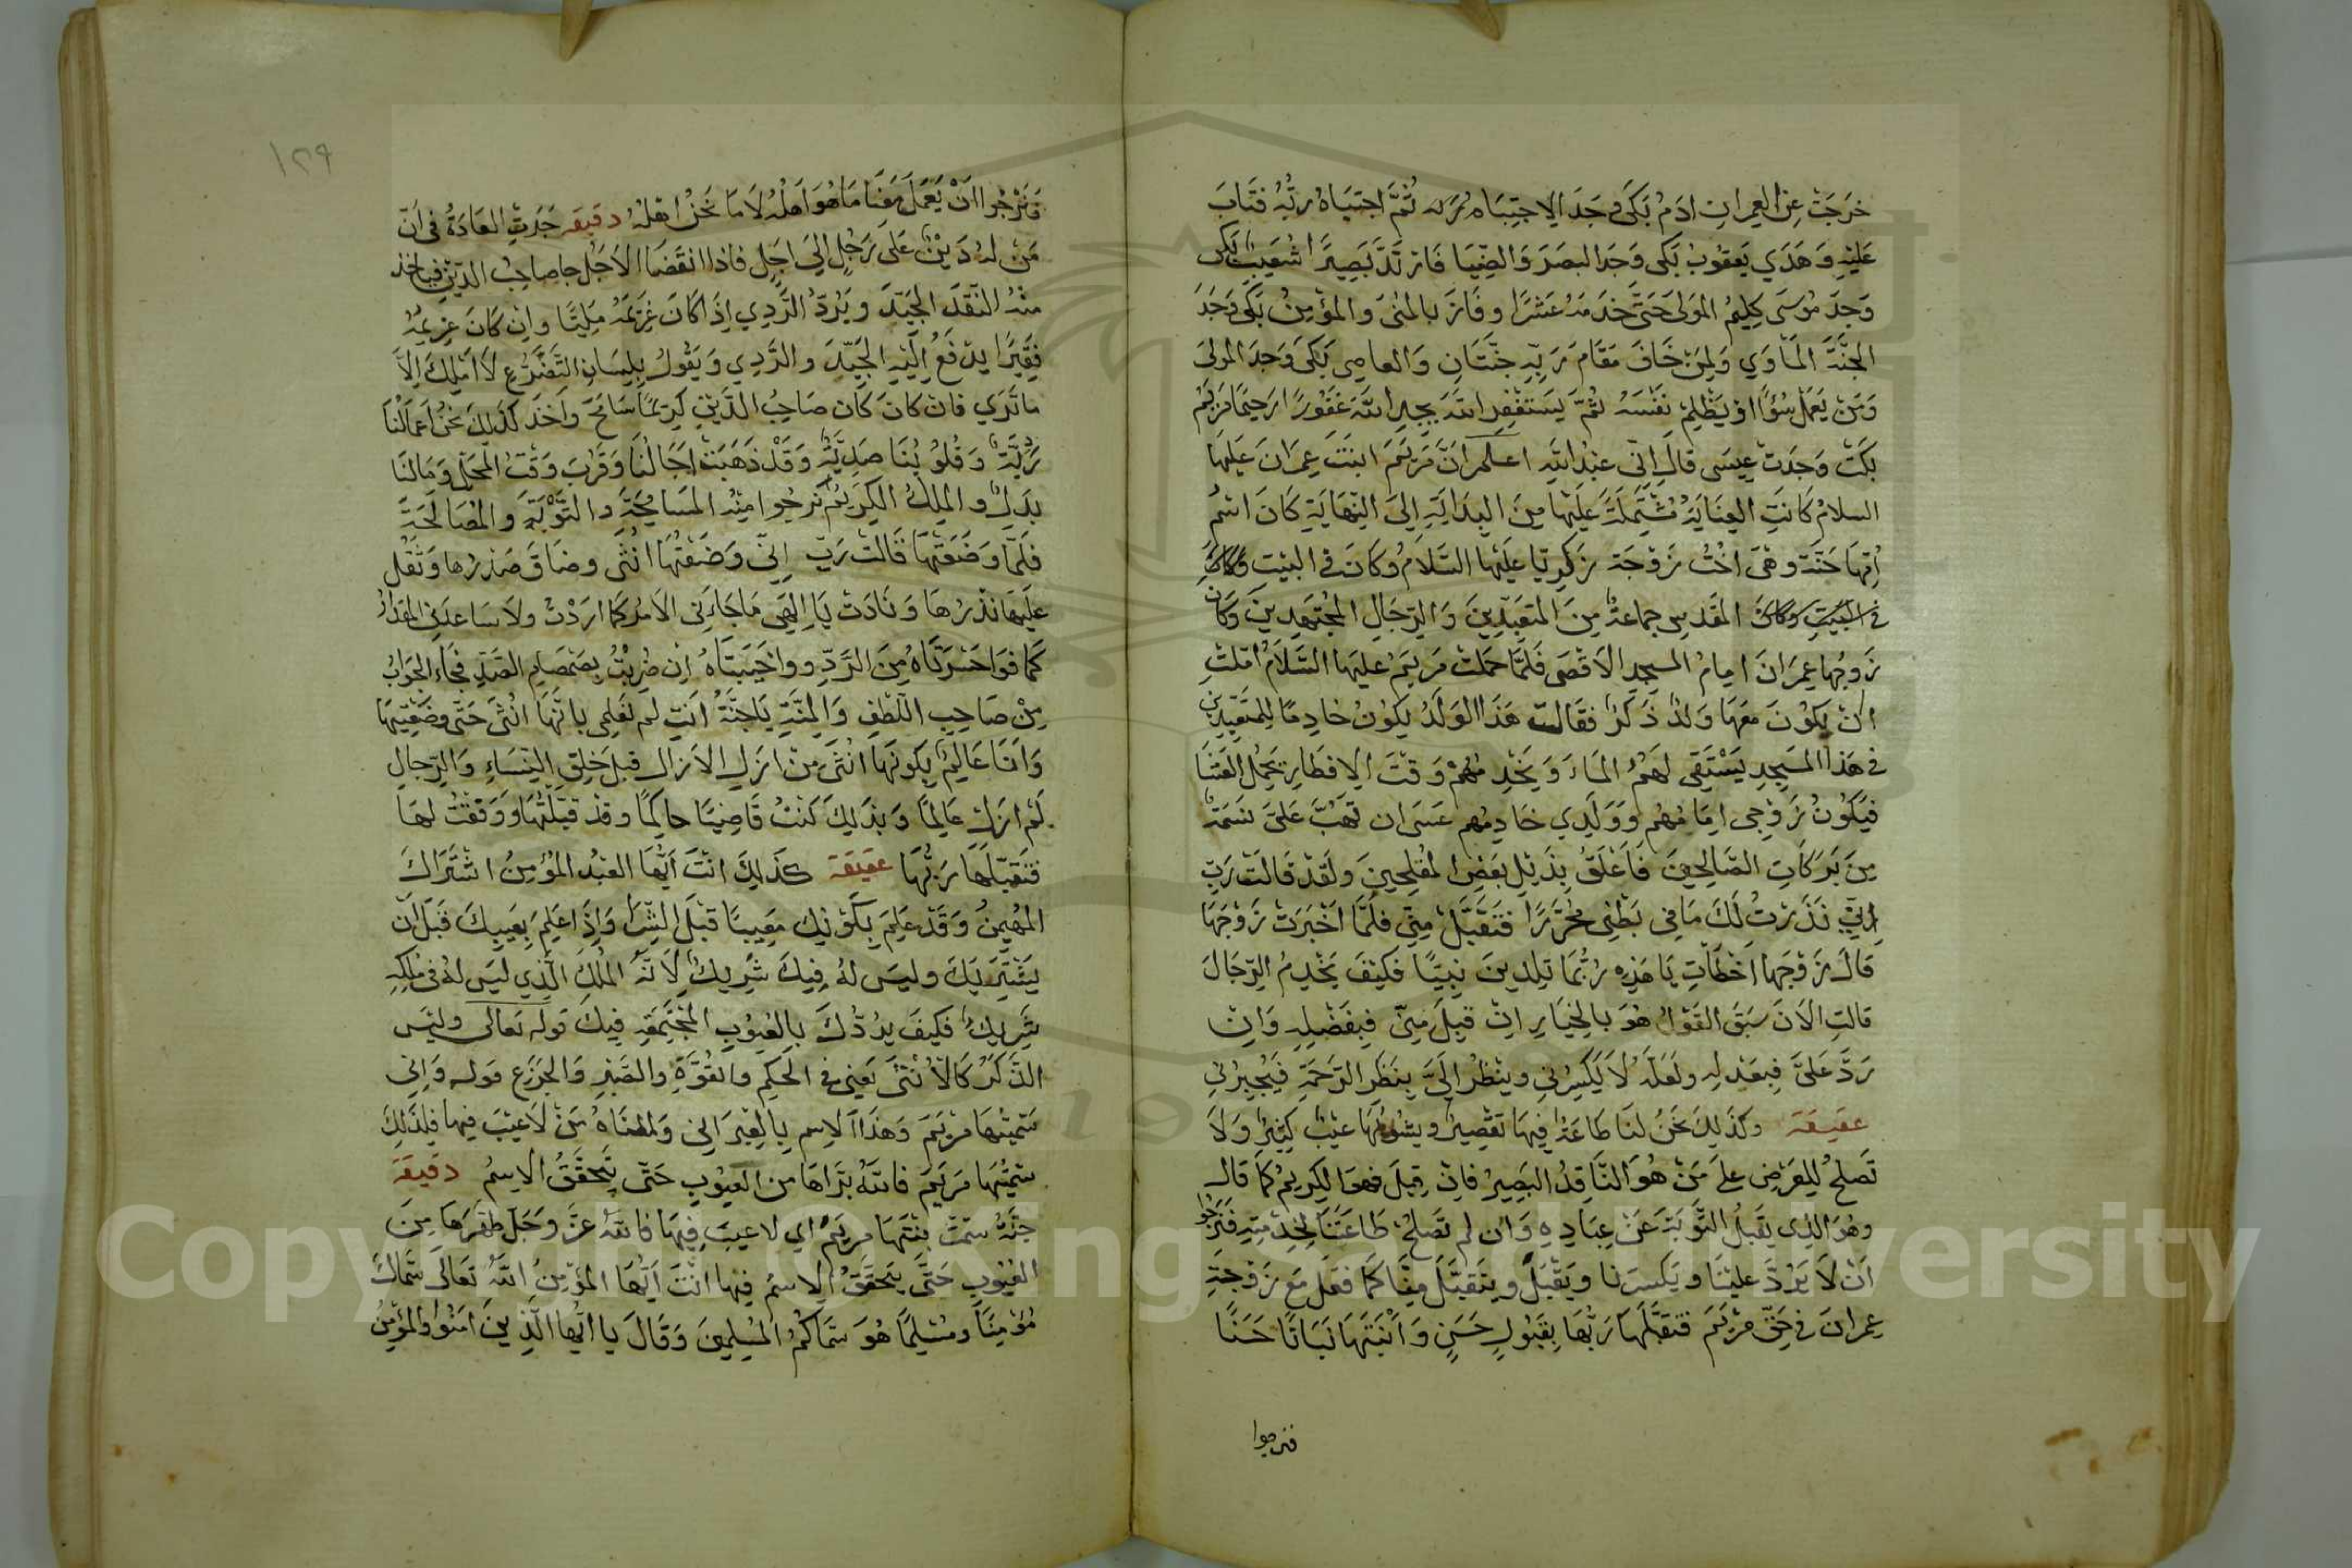 خرجت عن العمران ادم بكى وجد الاجتباه ثم اجتباه ربه فتاب
عليه وهدي يعقوب بكى وجد البصر والضيا فارتد بصيرا شعيب بكى
وجد موسى كليم المولى حتى خدمه عشرا وفاز بالمنى والمؤمن بكى وجد
الجنة المأوي ولمن خاف مقام ربه جنتان والعاصي بكى وجد المولى
ومن يعمل سؤا او يظلم نفسه ثم يستغفر الله يجد الله غفورا رحيما مريم
بكت وجدت عيسى قال اني عبد الله اعلم ان مريم ابنت عمران عليها
السلام كانت العناية مشتملة عليها من البداية الى النهاية كان اسم
امها حنة وهى اخت زوجة زكريا عليها السلام وكان في البيت
في البيت المقدس جماعة من المتعبدين والرجال المجتهدين وكان
زوجها عمران امام المسجد الاقصى فلما حملت مريم عليها السلام املت
ان يكون معها ولد ذكر فقالت هذا الولد يكون خادما للمتعبدين
في هذا المسجد يستقى لهم الماء ويخدمهم وقت الافطار يحمل العشا
فيكون زوجى امامهم وولدي خادمهم عسى ان تهب على نسمة
من بركات الصالحين فاعلق بذيل بعض المفلحين ولقد قالت رب
اني نذرت لك ما في بطني محررا فتقبل مني فلما اخبرت زوجها
قال زوجها اخطأت يا هذه ربما تلدين نبيا فكيف يخدم الرجال
قالت الان سبق القول هو بالخيار ان قبل منى فبفضله وان
رد على فبعدله ولعله لا يكسرني وينظر الى بنظر الرحمة فيجبرني
عقيقة وكذلك نحن لنا طاعة فيها تقصير ويشوبها عيب كثير ولا
تصلح للعرض على من هو الناقد البصير فان قبل فهو الكريم كما قال
وهو الذى يقبل التوبة عن عباده وان لم تصلح طاعتنا لخدمته فنرجوا
ان لا يرد علينا ويكسرنا ويقبل ويتقبل منا كما فعل مع زوجة
عمران في حق مريم فتقبلها ربها بقبول حسن وانبتها نباتا حسنا
فنرجوا
١٢٩
فنرجوا ان يعمل معنا ما هو اهله لا ما نحن اهله دقيقه جرت العادة في ان
من له دين على رجل الى اجل فاذا انقضا الاجل جا صاحب الدين فياخذ
منه النقد الجيد ويرد الردي اذا كان غريمه مليتا وان كان غريمه
فقيرا يدفع اليه الجيد والردي ويقول بلسان التضرع لا املك الا
ما ترى فان كان كان صاحب الدين كريما سامح واخذ كذلك نحن اعمالنا
ردية وقلوبنا صدية وقد ذهبت اجالنا وقرب وقت المحل ومالنا
بدل والملك الكريم نرجوا منه المسامحة والتوبة والمصالحة
فلما وضعتها قالت رب اني وضعتها انثى وضاق صدرها وثقل
عليها نذرها ونادت يا الهى ما جاءنى الامر كما اردت ولا ساعدني المقدار
كما فواحسرتاه من الرد وواخيبتاه ان ضربت بصمصام الصد فجاء الجواب
من صاحب اللطف والمنة يا حنة انت لم تعلمى بانها انثى حتى وضعتيها
وانا عالم بكونها انثى من ازل الازال قبل خلق النساء والرجال
لم ازل عالما وبذلك كنت قاضيا حاكما وقد قبلتها ووفقت لها
فتقبلها ربها عقيقة كذلك انت ايها العبد المؤمن اشتراك
المهيمن وقد علم بكونك معيبا قبل الشرا واذا علم بعيبك قبل ان
يشتريك وليس له فيك شريك لانه الملك الذي ليس له في ملكه
شريك فكيف يردك بالعيوب المجتمعة فيك قوله تعالى وليس
الذكر كالانثى يعني في الحكم والقوة والصبر والجزع قوله واني
سميتها مريم وهذا الاسم بالعبراني ومعناه من لا عيب فيها فلذلك
سميتها مريم فان الله براها من العيوب حتى يتحقق الاسم دقيقة
حنة سمت بنتها مريم اي لا عيب فيها فان الله عز وجل طهرها من
العيوب حتى يتحقق الاسم فيها انت ايها المؤمن الله تعالى سماك
مؤمنا ومسلما هو سماكم المسلمين وقال يا ايها الذين امنوا والمؤمن
Copyright © King Saud University